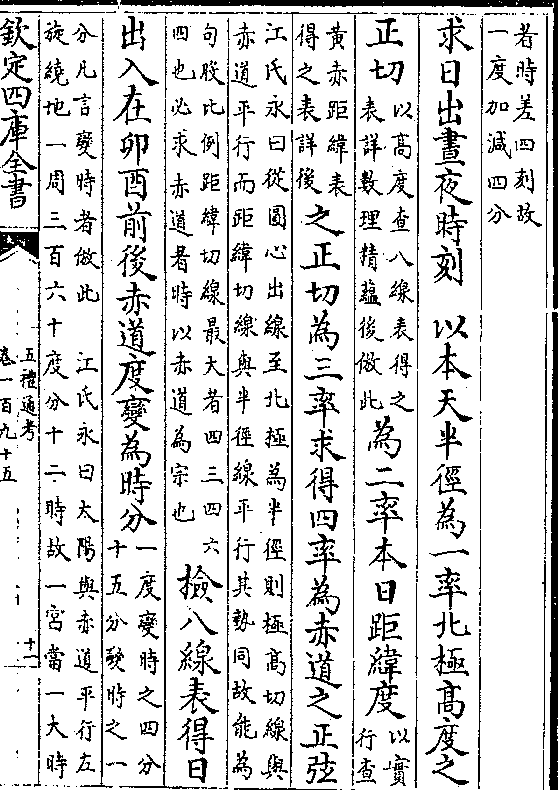 者時差四刻故
一度加減四分
求日出晝夜時刻　以本天半徑為一率北極高度之
正切
以高度查八線表得之
表詳數理精蘊後倣此
為二率本日距緯度
以實
行查
黃赤距緯表
得之表詳後
之正切為三率求得四率為赤道之正弦
江氏永曰從圓心出線至北極為半徑則極高切線與
赤道平行而距緯切線與半徑線平行其勢同故能為
句股比例距緯切線最大者四三四六
四也必求赤道者時以赤道為宗也
檢八線表得日
出入在卯酉前後赤道度變為時分
一度變時之四分
十五分變時之一
分凡言變時者倣此　江氏永曰太陽與赤道平行左
旋繞地一周三百六十度分十二時故一宮當一大時
欽定四庫全書
五禮通考
卷一百九十五
十一